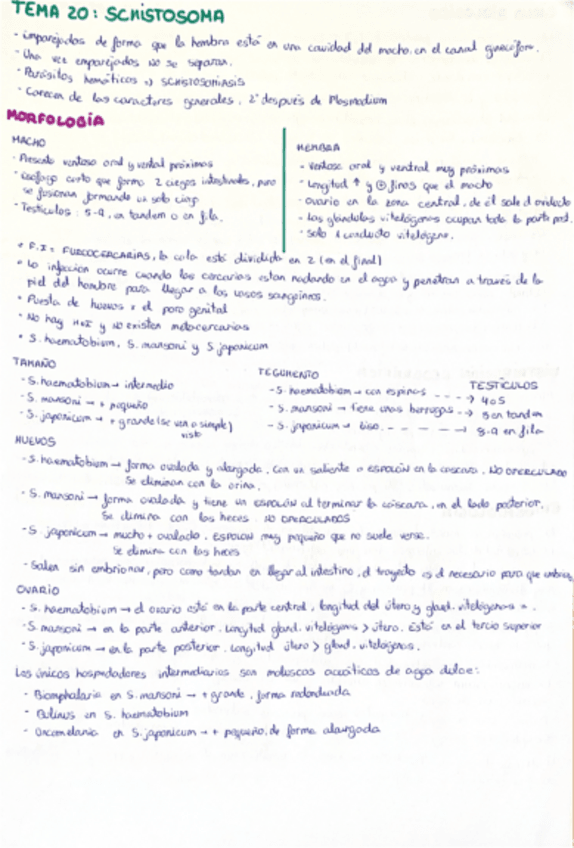 TEMA 20: SCHISTOSOMA
- Emparejados de forma que la hembra está en una cavidad del macho, en el canal ginecóforo.
- Una vez emparejados no se separan.
- Parásitos hemáticos → SCHISTOSOMIASIS
- Carecen de los caracteres generales, 2º después de Plasmodium
MORFOLOGÍA
MACHO
- Presenta ventosa oral y ventral próximas
- Esófago corto que forma 2 ciegos intestinales, pero
se fusionan formando un solo ciego
- Testículos: 5-9, en tandem o en fila.
HEMBRA
- Ventosa oral y ventral muy próximas
- Longitud ↑ y ⊕ finos que el macho
- Ovario en la zona central, de él sale el oviducto
- Las glándulas vitelógenas ocupan toda la parte post.
- Solo 1 conducto vitelógeno.
• F.I: FURCOCERCARIAS, la cola está dividida en 2 (en el final)
• La infección ocurre cuando las cercarias estan nadando en el agua y penetran a través de la
piel del hombre para llegar a los vasos sanguíneos.
• Puesta de huevos x el poro genital
• No hay y no existen metacercarias
• S. haematobium, S. mansoni y S. japonicum
TAMAÑO
- S. haematobium → intermedio
- S. mansoni → + pequeño
- S. japonicum → + grande (se ven a simple
vista)
TEGUMENTO
- S. haematobium → con espinas
- S. mansoni → tiene unas berrugas
- S. japonicum → liso
TESTÍCULOS
→ 4 o 5
→ 8 en tandem
→ 8-9 en fila
HUEVOS
- S. haematobium → forma ovalada y alargada. Con un saliente o ESPOLÓN en la cáscara. NO OPERCULADO
Se eliminan con la orina.
- S. mansoni → forma ovalada y tiene un ESPOLÓN al terminar la cáscara, en el lado posterior.
Se elimina con las heces. NO OPERCULADOS
- S. japonicum → mucho + ovalado. ESPOLÓN muy pequeño que no suele verse.
Se elimina con las heces
- Salen sin embrionar, pero como tardan en llegar al intestino, el trayecto es el necesario para que
OVARIO
- S. haematobium → el ovario está en la parte central, longitud del útero y gland. vitelógenas =.
- S. mansoni → en la parte anterior. Longitud gland. vitelógenas > útero. Está en el tercio superior
- S. japonicum → en la parte posterior. Longitud útero > gland. vitelógenas.
Los únicos hospedadores intermediarios son moluscos acuáticos de agua dulce:
- Biomphalaria en S. mansoni → + grande, forma redondeada
- Bulinus en S. haematobium
- Oncomelania en S. japonicum → + pequeño, de forma alargada